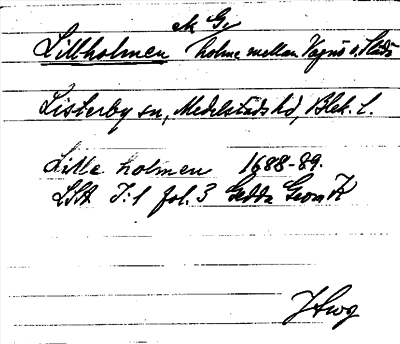 Lillholmen holme mellan Vagnö o. Slädö
Listerby sn, Medelstads hd, Blek. l.
Lille holmen 1688-89.
LSA I:1 fol. 3 Gedda Geom K